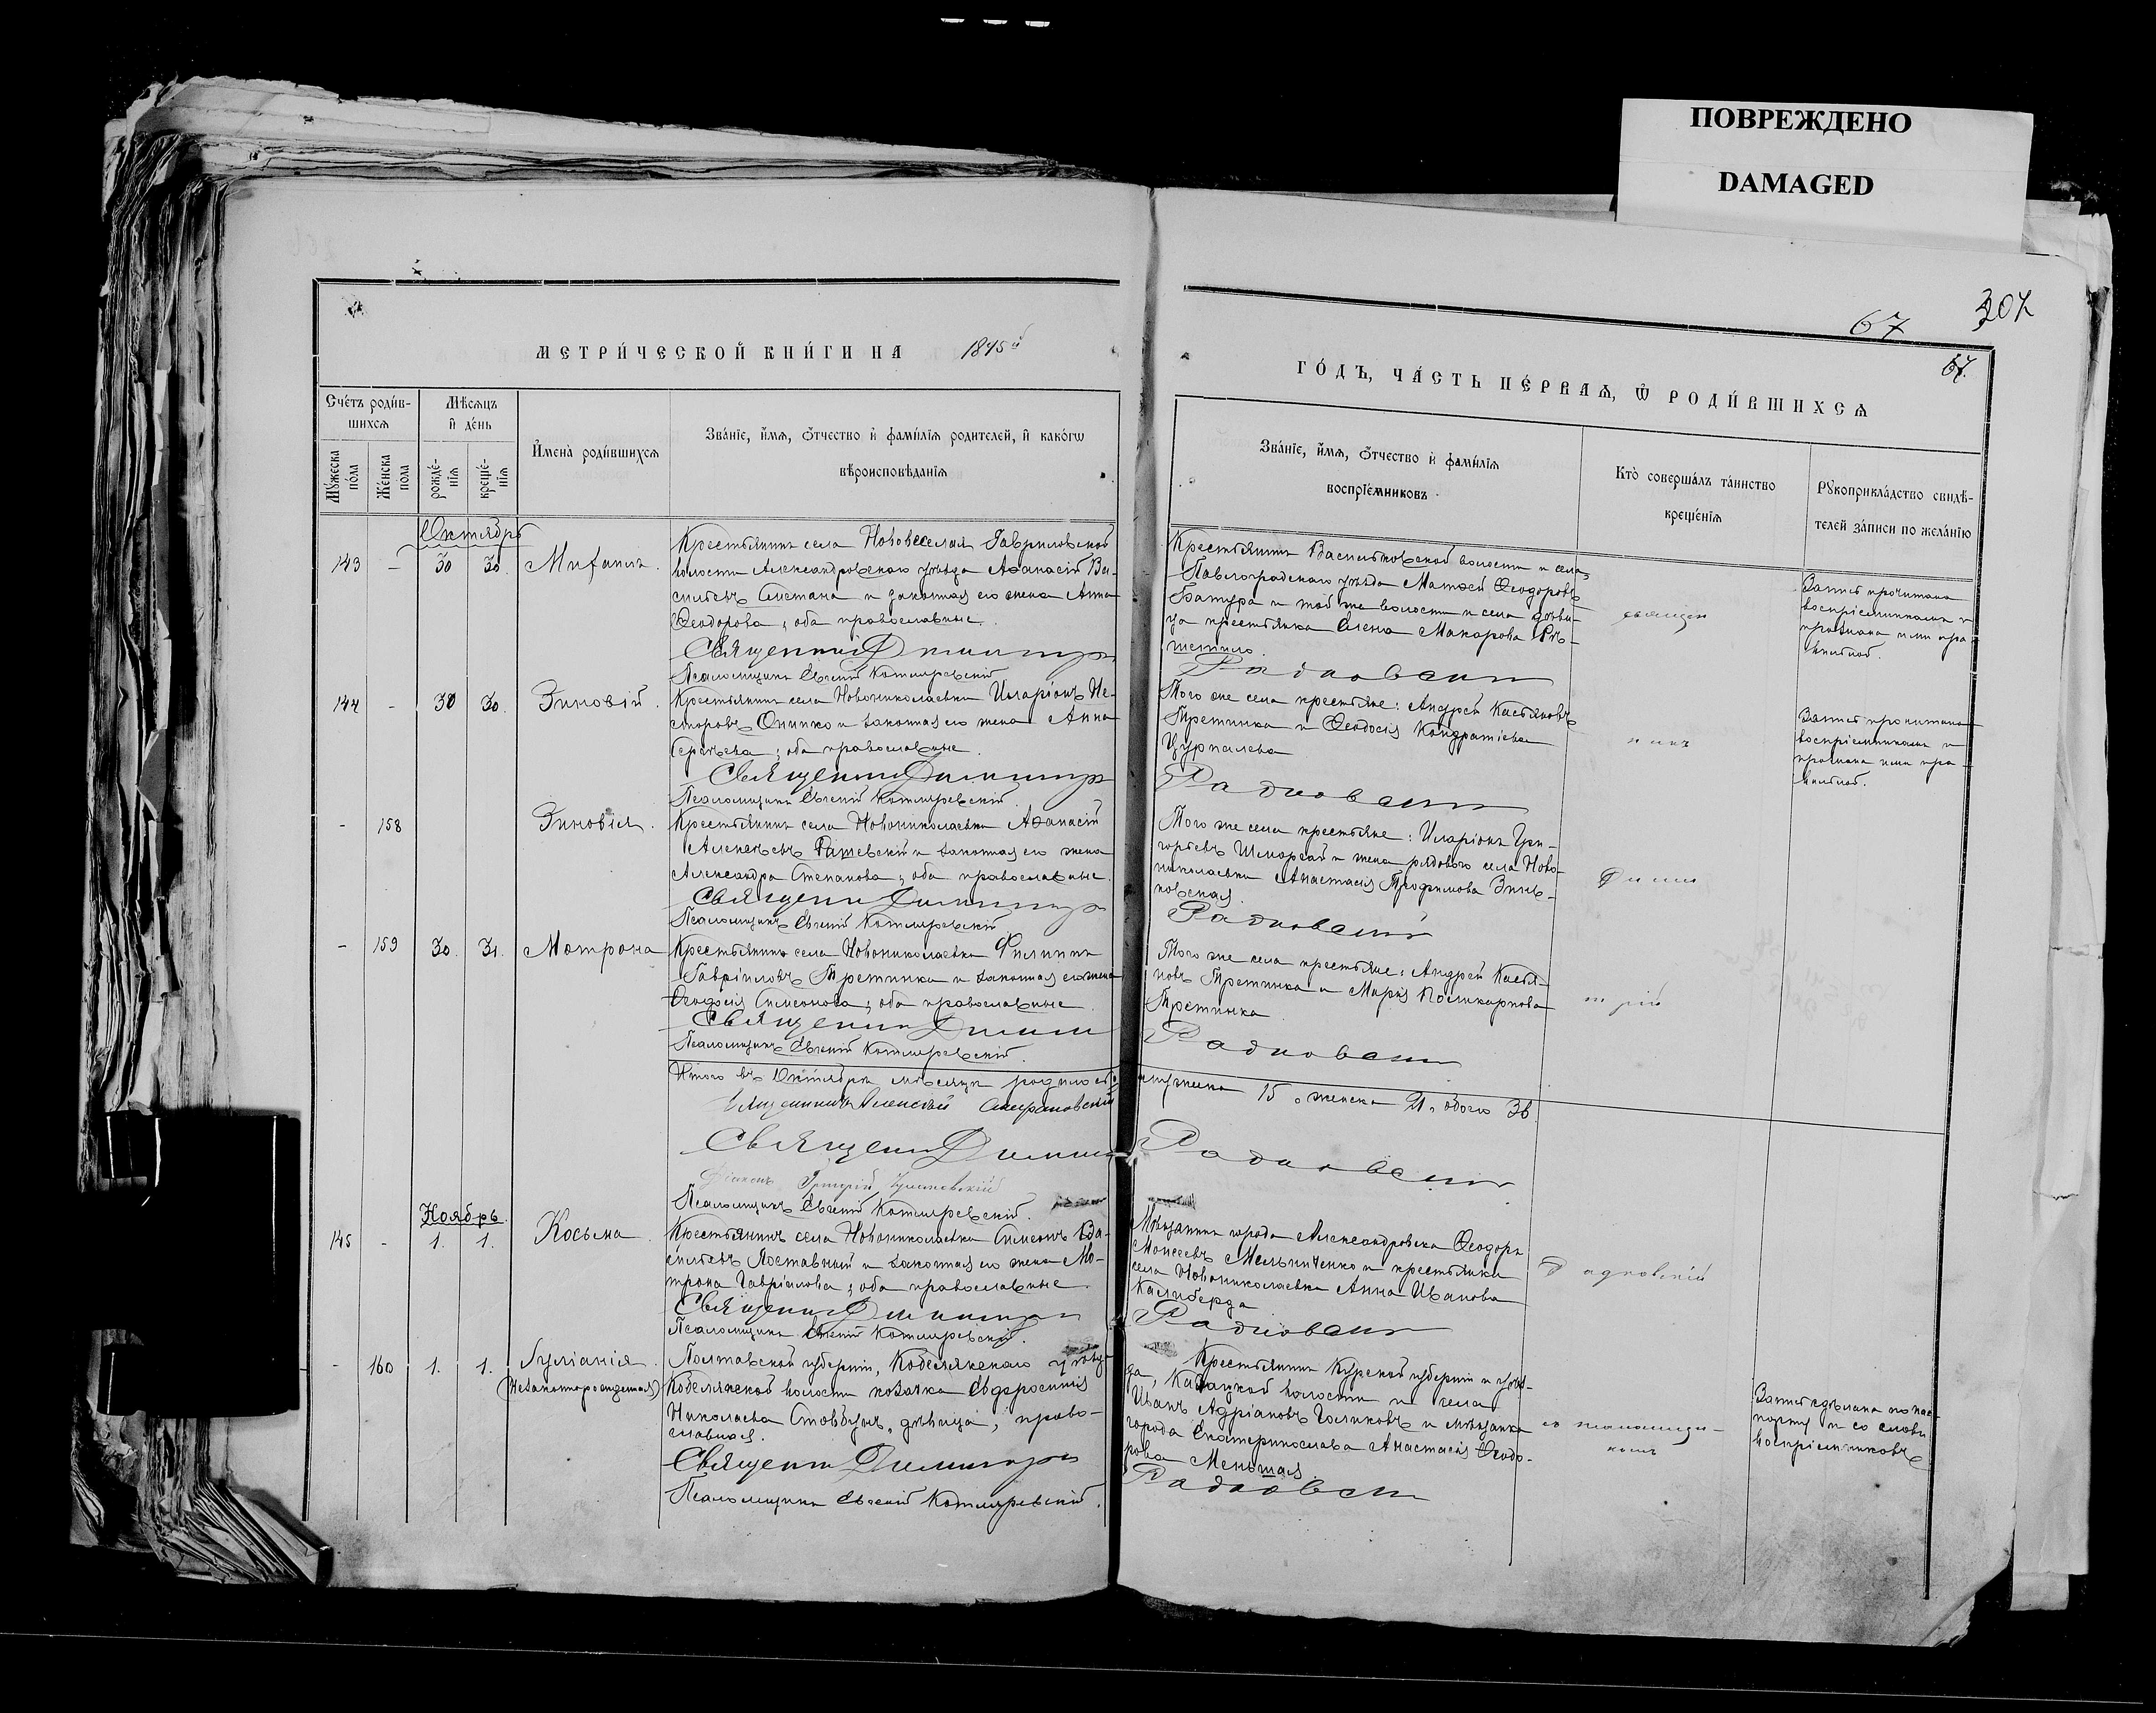 ПОВРЕЖДЕНО
DAMAGED
307
67
67.
МЕТРИ́ЧЕСКОЙ КНИ́ГИ НА 1895й
ГО́ДЪ, ЧА́СТЬ ПЕ́РВАѦ, Ѡ РОДИ́ВШИХСѦ
Сче́тъ роди́вшихсѧ
Му́жеска по́ла
Же́нска пола
Мѣ́сѧцъ и҆ де́нь
рожде́нїѧ
креще́нїѧ
И҆мена̀ роди́вшихсѧ
Зва́нїе, и҆́мѧ, ѻ҆́тчество и҆ фами́лїѧ родителей, и҆ како́гѡ
вѣроисповѣ́данїѧ
Зва́нїе, и҆́мѧ, ѻ҆́тчество и҆ фами́лїѧ
воспрїе́мниковъ
Кто̀ соверша́лъ та́инство
креще́нїѧ
Рꙋкоприкла́дство свидѣ́-
телей за́писи по жела́нїю
Октябрь
143 - 30 30.
Крестьянинъ села Нововеселая Гавриловской
волости Александровскаго уѣзда Аѳанасій Ва-
сильевъ Сметана и законная его жена Анна
Ѳеодорова, оба православные.
Священникъ Димитр
Псаломщикъ Евгеній Котляревскій
Крестьянинъ Васильковской волости и села,
Павлоградскаго уѣзда Матѳей Ѳеодоровъ
Батура и той же волости и села дѣви-
ца крестьянка Елена Макарова Рѣ-
шетило.
Радковскій
священ
Запись прочитана
воспріемниками и
признана ими пра-
вильной.
144 - 30 30. Зиновій.
Крестьянинъ села Новониколаевки Иларіонъ Не-
сторовъ Онипко и законная его жена Анна
Сергѣева; оба православные.
Священникъ Димитр
Псаломщикъ Евгеній Котляревскій.
Того же села крестьяне: Андрей Касьяновъ
Третинка и Ѳеодосія Кондратіева
Радковскій
никъ
Запись прочитана
воспріемниками и
признана ими пра-
вильной.
- 158 Зиновія.
Крестьянинъ села Новониколаевки Аѳанасій
Алексѣевъ и законная его жена
Александра Степанова, оба православные.
Священникъ Димитр
Псаломщикъ Евгеній Котляревскій
Того же села крестьяне: Иларіонъ Гри-
горьевъ и жена рядового села Ново-
николаевки Анастасія Трофимова Зинь-
ковская.
Радковскій
Дими
- 159 30. 31. Мотрона
Крестьянинъ села Новониколаевки Филиппъ
Гавріиловъ Третинка и законная его жена
Ѳеодосія Симеонова; оба православные.
Священникъ Дими
Псаломщикъ Евгеній Котляревскій.
Того же села крестьяне: Андрей Касья-
новъ Третинка и Марія Поликарпова
Третинка
Радковскій
трій
Итого въ Октябрѣ мѣсяцѣ родилось мужеска 15, женска 21, обоего 36
Священникъ Алексѣй
Священникъ Димит Радковскій
Діаконъ Григорій
Псаломщикъ Евгеній Котляревскій.
Ноябрь.
145 - 1. 1. Косьма.
Крестьянинъ села Новониколаевки Симеонъ Ва-
сильевъ Лоставный и законная его жена Мо-
трона Гавріилова; оба православные.
Священникъ Димитр
Псаломщикъ Евгеній Котляревскій.
Мѣщанинъ города Александровска Ѳеодоръ
Моисеевъ Мельниченко и крестьянка
села Новониколаевки Анна Иванова
Калиберда
Радковскій
Радковскій
- 160 1. 1. Іуліанія.
(незаконнорожденная)
Полтавской губерніи, Кобелякскаго уѣзда
Кобелякской волости козачка Евфросинія
Николаева Стовбунъ, дѣвица, право-
славная.
Священникъ Димитр
Псаломщикъ Евгеній Котляревскій.
Крестьянинъ Курской губерніи и уѣз-
да, Казацкой волости и села
Иванъ Адріановъ Голиковъ и мѣщанка
города Екатеринослава Анастасія Ѳеодо-
рова Меньшая.
Радковск
съ псаломщи-
комъ
Запись сдѣлана по пас-
порту и со словъ
воспріемниковъ